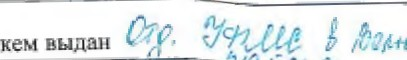 кем выдан Отд. УФМС в